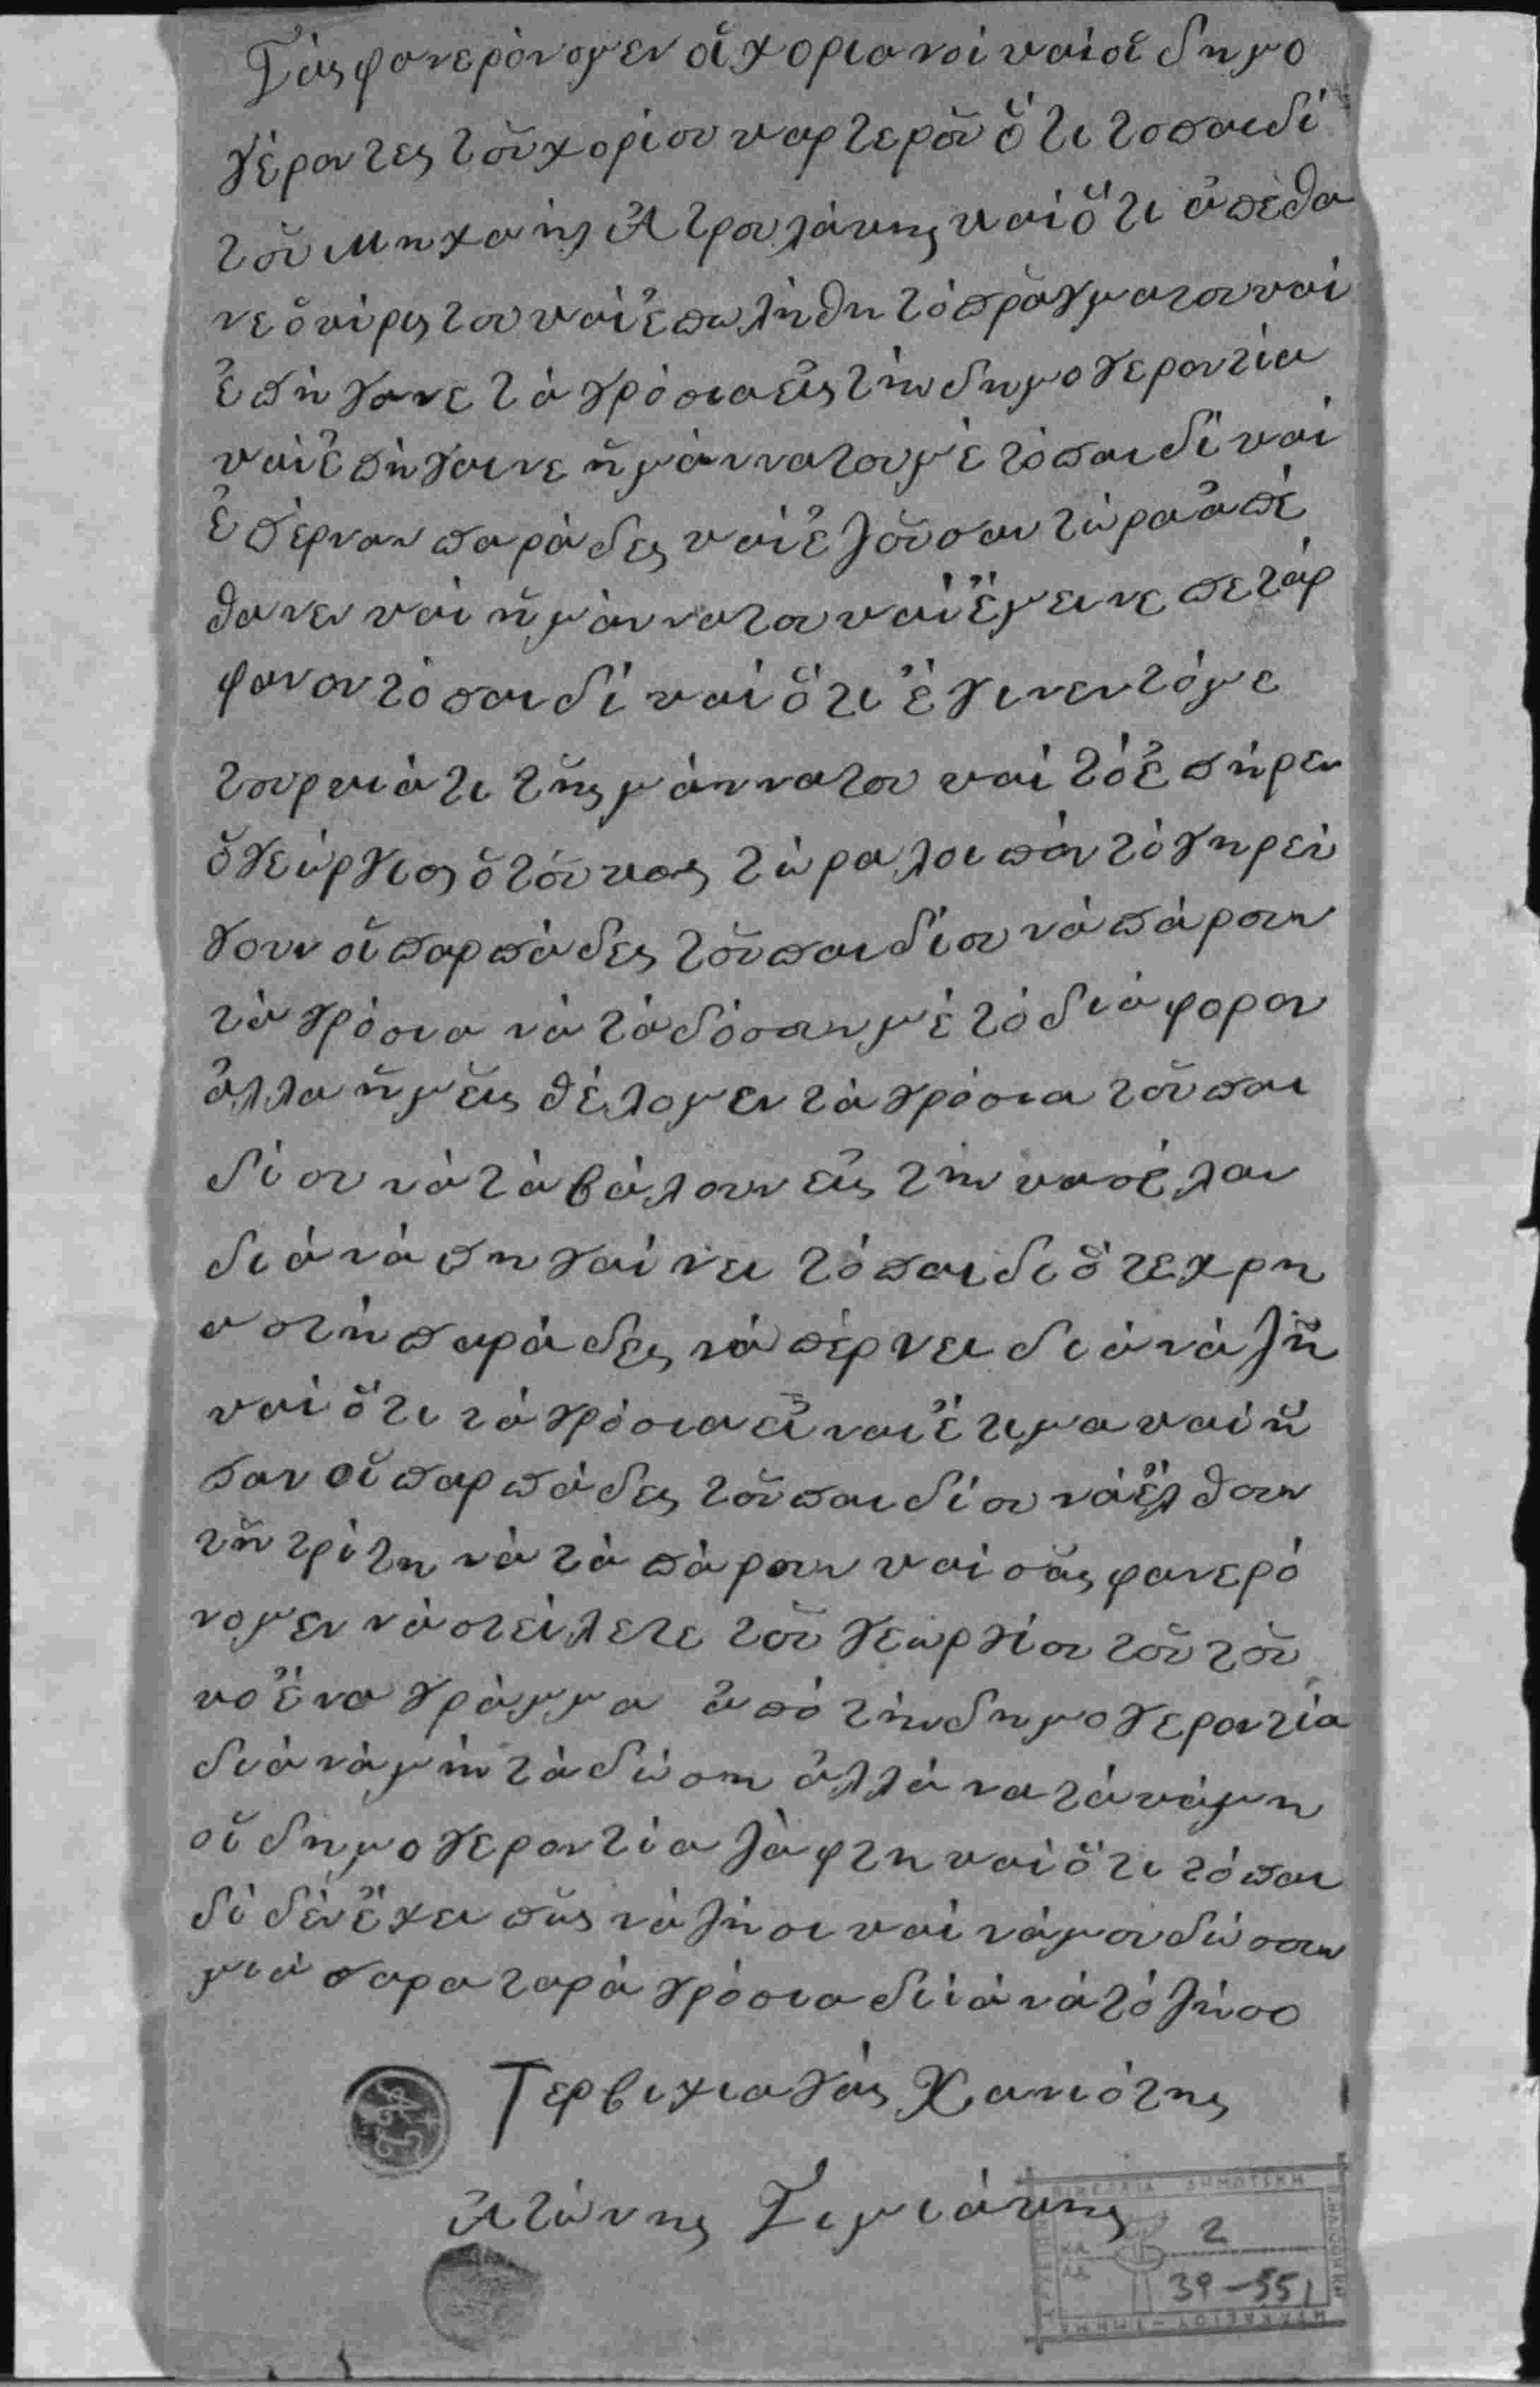 Σᾶς φανερόνομεν οἱ χοριανοί καί οἱ δημο
γέροντες τοῦ χορίου καρτεροῦ ὅτι το παιδί
τοῦ Μηχαήλ Ἀτρουλάκης καί ὅτι ἀπέθα
νε ὁ κίρις του καί ἐπωλήθη τό πρᾶγμα του καί
ἐπήγανε τά γρόσια εἰς τήν δημογεροντία
καί ἐπήγαινε ἡ μάννα του μέ τό παιδί καί
ἐπέρναν παράδες καί ἐζοῦσαν τώρα ἀπέ
θανεν καί ἡ μάννα του καί ἔμεινε πετάρ
φανον τό παιδί καί ὅτι ἔγινεν τό με
τουρκιάτι τῆς μάννα του καί τό ἐπήρεν
ὁ Γεώργιος ὁ τοῦκος τώρα λοιπόν τό γηρεύ
γουν οἱ παρπάδες τοῦ παιδίου νά πάρουν
τά γρόσια νά τά δόσουν μέ τό διάφορον
ἀλλα ἡμεῖς θέλομεν τά γρόσια τοῦ παι
δίου νά τά βάλουν εἰς τήν κασέλαν
διά νά πηγαίνει τό παιδι ὅτε χρη
αστῆ παράδες νά πέρνει διά νά ζῆ
καί ὅτι τά γρόσια εἶναι ἔτιμα καί ἦ
παν οἱ παρπάδες τοῦ παιδίου νά ἔλθουν
τῆ τρίτη νά τά πάρουν καί σᾶς φανερό
νομεν νά στείλετε τοῦ Γεωργίου τοῦ τοῦ
κο ἕνα γράμμα ἀπό τήν δημογεροντία
διά νά μήν τά δώση ἀλλά να τά κάμη
οἱ δημογεροντία ζάφτη καί ὅτι τό παι
δί δέν ἔχει πῶς νά ζήσι καί νά μου δώσουν
μιά σαρα ταρά γρόσια διά νά τό ζήσο
Τερβιχιαγάς Χανιότης
Ἀτώνης Σιμιάκης
ΔΗΜΟΤΙΚΗ
2
39-551